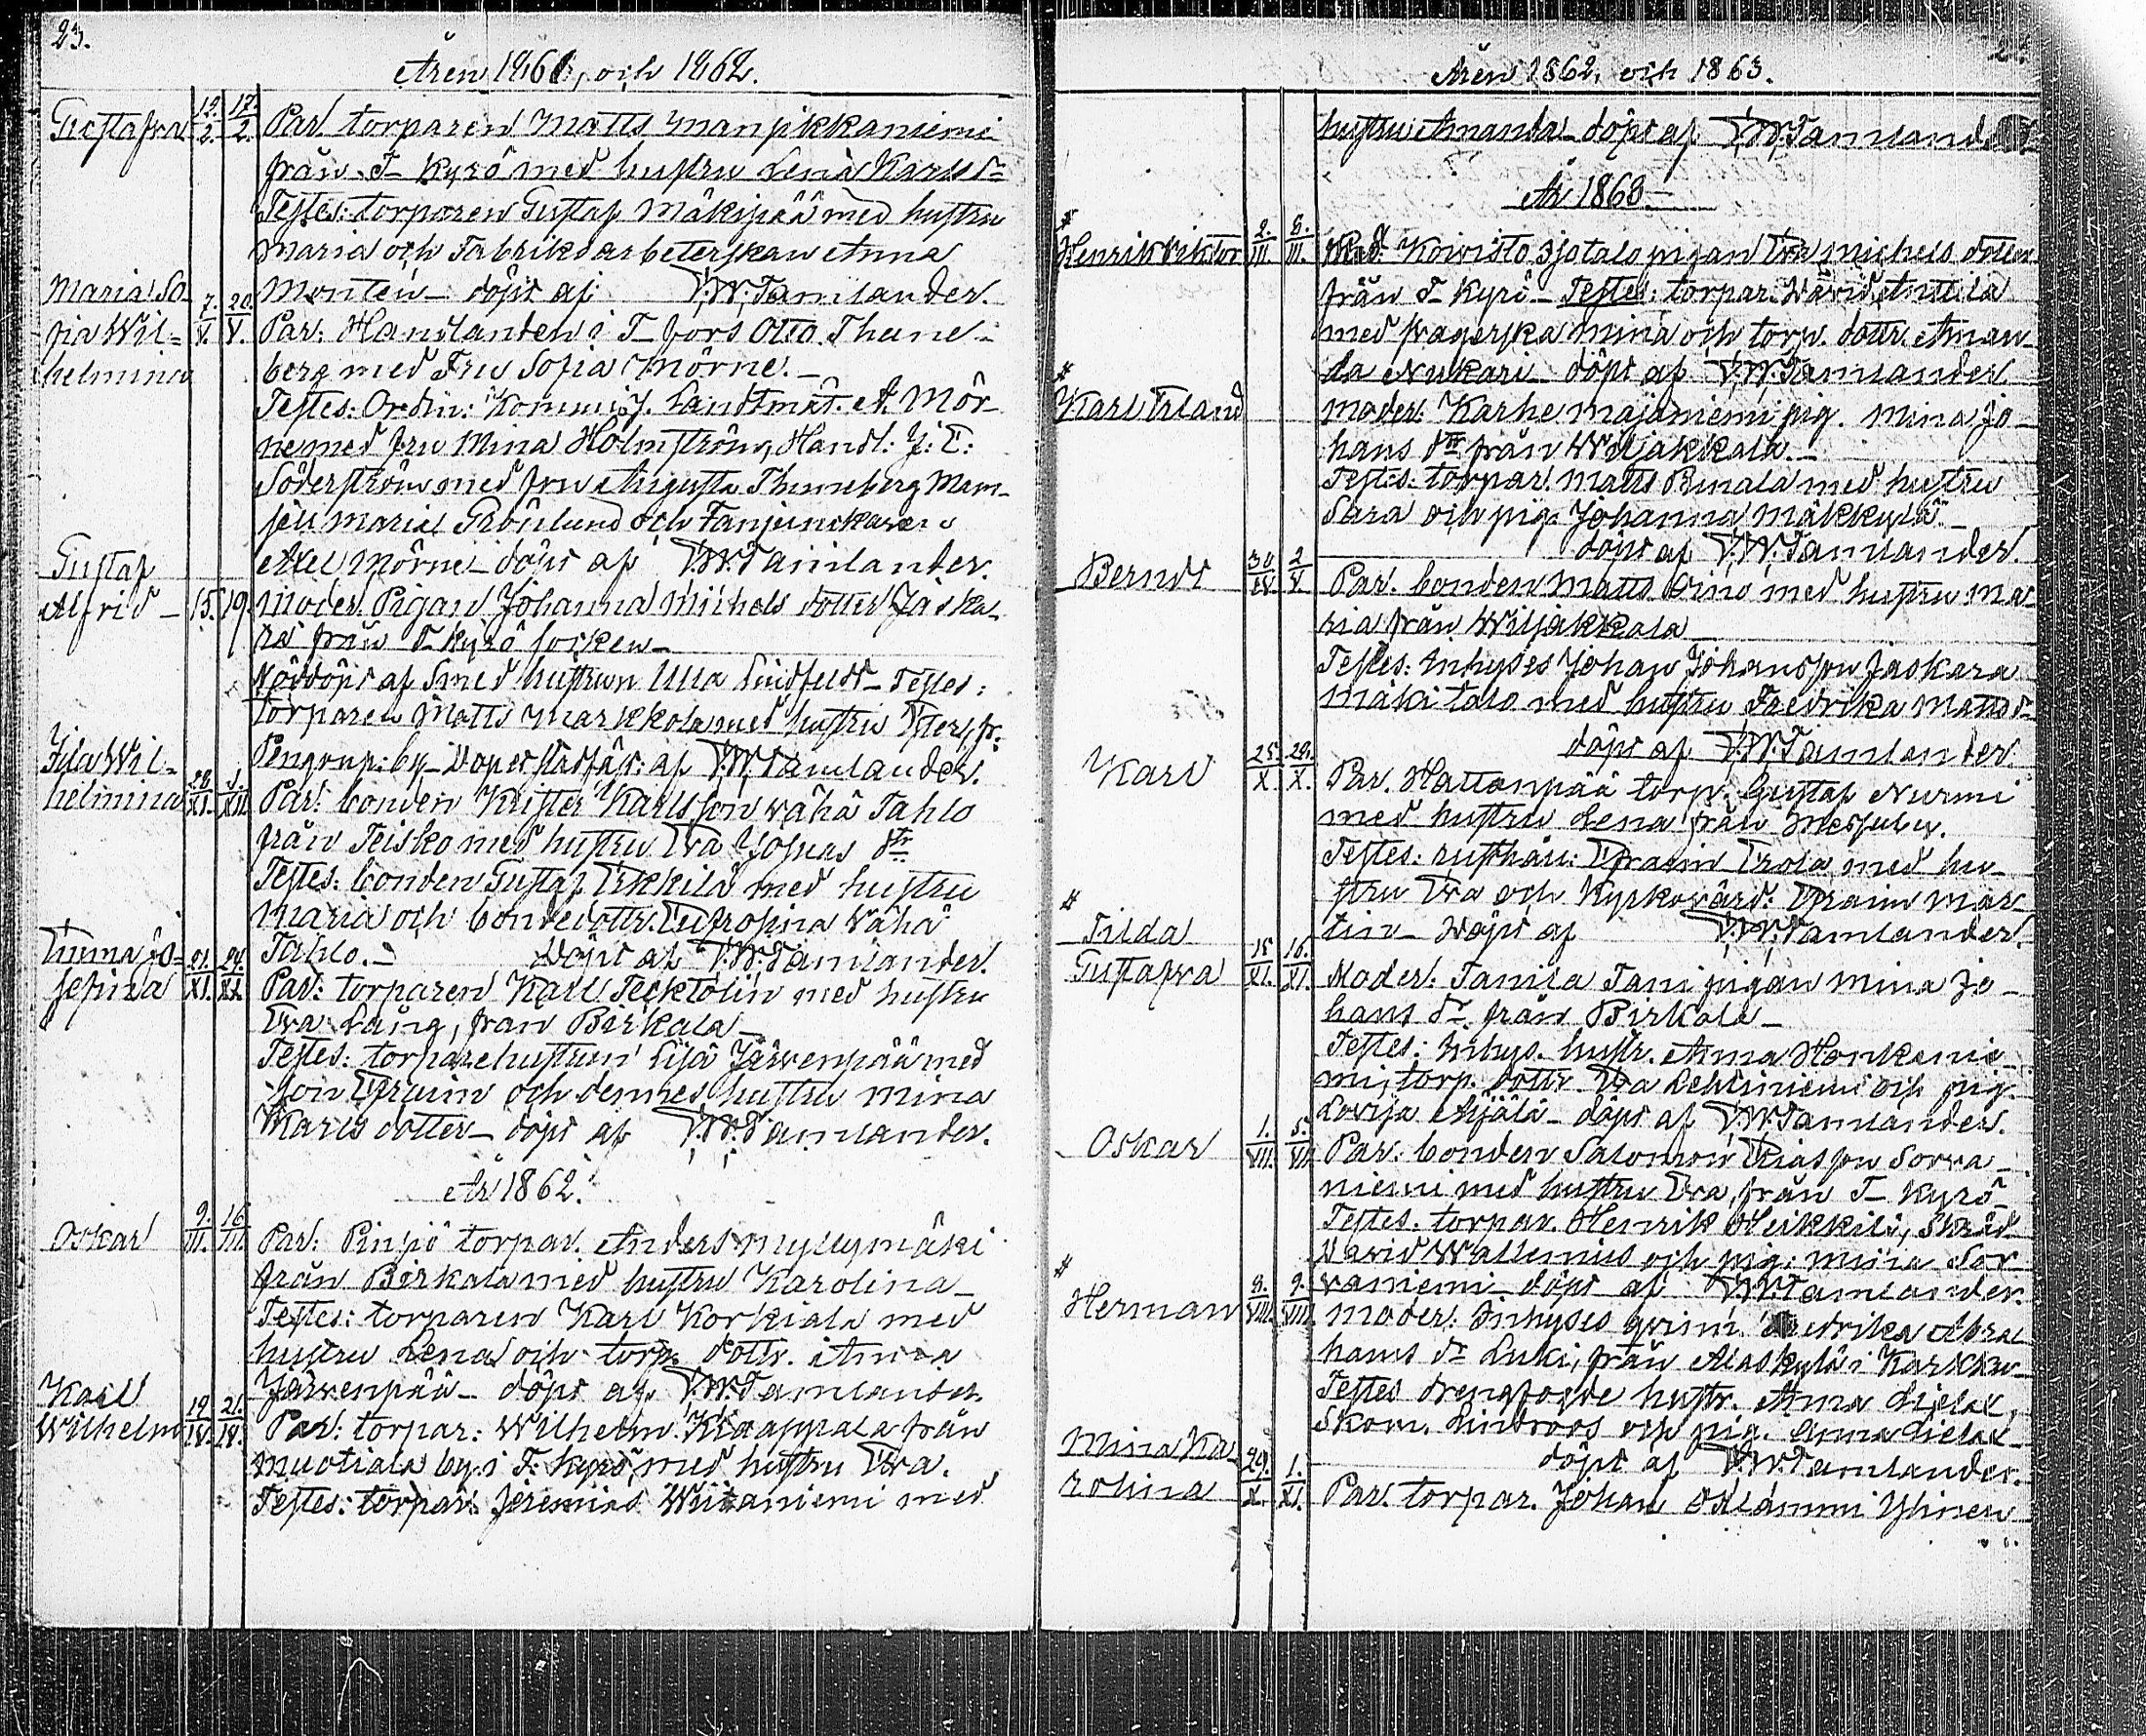 23.
Åren 1861, och 1862.
Gustafva 12/2. 17/2. Par. torparen Matts Manpikkaniemi
från T-Kyrö med hustru Lena Karlsdr
Testes: torparen Gustaf Mäkipää med hustru
Maria och Fabriksarbeterskan Anna
Montén döpt af V.W. Tamlander.
Maria So-
fia Wil-
helmina 7./V. 20/V. Par: Handlanden i T-fors Otto Thune-
berg med Fru Sofia Mörne.
Testes: Ordin: Kommiss. Landtmät. A. Mör-
ne med fru Mina Holmström, Handl: J: E:
Söderström med fru Augusta Thuneberg Mam-
sell Maria Grönlund och
Axel Mörne döpt af V.W. Tamlander.
Gustaf
Alfrid 15. 19. Moder. Pigan Johanna Michels dotter Jaska-
ra från T-Kyrö socken
Nöddöpt af Smed hustrun Ulla Lindfeldt Testes:
torparen Matts Markkola med hustru Ester, fr.
by Dopet stadfäst: af V.W. Tamlander.
Ida Wil-
helmina 28/XI. 1/XII. Par: bonden Krister Karlsson Wähä Tahlo
från Teisko med hustru Eva Jofeas dtr
Testes: bonden Gustaf Erkkilä med hustru
Maria och bondedottr. Eufrosina Wähä
Tahlo. Döpt af V.W. Tamlander.
Emma Jo-
sefina 21./XI. 24./XI. Par: torparen Karl Tecktolin med hustru
Eva Lång, från Birkala
Testes: torparehustrun Lisa Järvenpää med
son Efraim och dennes hustru Mina
Karls dotter döpt af V.W. Tamlander.
År 1862.
Oskar 9./III. 16./III. Par: Pinsiö torpar. Anders Myllymäki
från Birkala med hustru Karolina
Testes: torparen Karl Korkiala med
hustru Lena och torp. dottr. Anna
Järvenpää döpt af V.W. Tamlander.
Karl
Wilhelm 19/IV. 21./IV. Par: torpar: Wilhelm Kaappala från
Muotiala by i T: Kyrö med hustru Eva.
Testes: torpar. Jeremias Wiitaniemi med
Åren 1862, och 1863.
hustru Amanda döpt af V.W. Tamlander
År 1863
#
Henrik Viktor 2./III. 8./III. Mod: Koivisto Sjotalo pigan Eva Michels dotter
från T-Kyrö Testes: torpar. David Anttila
med svägerska Mina och torp. dottr. Aman-
da Nukari döpt af V.W. Tamlander
#
Karl Erland Moder: Karhe Majaniemi pig. Mina Jo-
hans dtr från Wiljakkala.
Testes: torpar. Matts Rinala med hustru
Sara och pig. Johanna Mäkkylä
döpt af V.W. Tamlander.
Berndt 30/IV. 2/V. Par. bonden Matts Oino med hustru Ma-
ria från Wiljakkala
Testes: Inhyses Johan Johansson Jaskara
Mäkitalo med hustru Fredrika Mattsdr
döpt af V.W. Tamlander.
Karl 25./X. 29./X. Par. Hattanpää torp. Gustaf Nurmi
med hustru Lena från Messuby.
Testes: rusthåll: Efraim Erola med hu-
stru Eva och Kyrkovärd: Efraim Mar-
tin Döpt af V.W. Tamlander.
#
Tilda
Gustafva 15/XI. 16./XI. Moder: Tamla Tani pigan Mina Jo-
hans dr från Birkala
Testes: Inhys. hustr. Anna Honkanie-
mi, torp. dottr Eva Lehtiniemi och pig.
Lovisa Ahjälä döpt af V.W. Tamlander.
Oskar 1./VII. 5./VII. Par: bonden Salomon Eliasson Sorva-
niemi med hustru Eva, från T-Kyrö
Testes. torpar. Henrik Heikkilä, Skräd.
David Wallenius och pig: Mina Sor-
vaniemi döpt af V.W. Tamlander.
#
Herman 8./VIII. 9./VIII. Moder: Inhyses qvinn. Fredrika Abra-
hams dr Luki, från i Karkku
Testes drengfogde hustr. Anna
Skom. Lindroos och pig. Anna
döpt af V.W. Tamlander.
Mina Ka-
rolina 29./X. 1./XI. Par. torpar. Johan Isklammi Yhinen